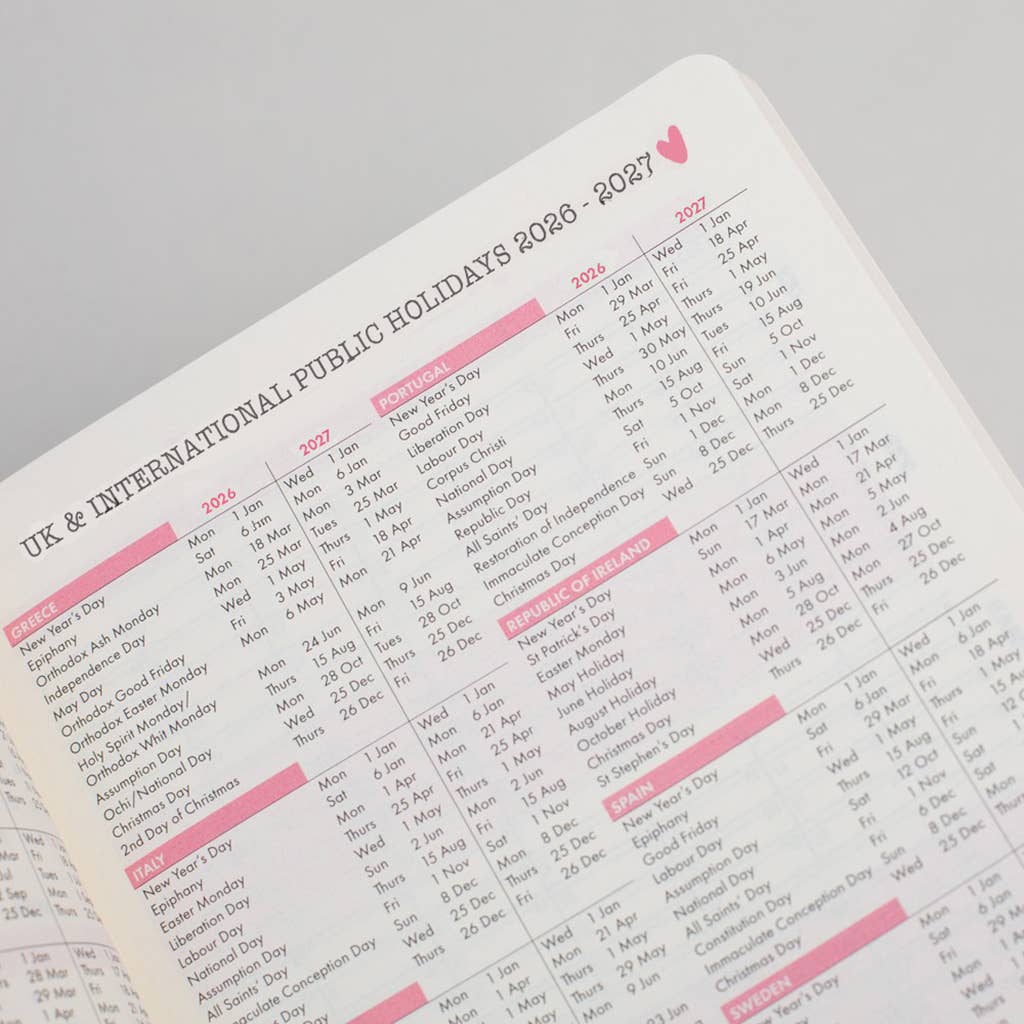 UK & INTERNATIONAL PUBLIC HOLIDAYS 2026 - 2027
GREECE 2026 2027
New Year's Day Mon 1 Jan Wed 1 Jan
Epiphany Sat 6 Jan Mon 6 Jan
Orthodox Ash Monday Mon 18 Mar Mon 3 Mar
Independence Day Mon 25 Mar Tues 25 Mar
May Day Wed 1 May Thurs 1 May
Orthodox Good Friday Fri 3 May Fri 18 Apr
Orthodox Easter Monday Mon 6 May Mon 21 Apr
Holy Spirit Monday/
Orthodox Whit Monday Mon 24 Jun Mon 9 Jun
Assumption Day Thurs 15 Aug Fri 15 Aug
Ochi/National Day Mon 28 Oct Tues 28 Oct
Christmas Day Wed 25 Dec Thurs 25 Dec
2nd Day of Christmas Thurs 26 Dec Fri 26 Dec
ITALY
New Year's Day Mon 1 Jan Wed 1 Jan
Epiphany Sat 6 Jan Mon 6 Jan
Easter Monday Mon 1 Apr Mon 21 Apr
Liberation Day Thurs 25 Apr Fri 25 Apr
Labour Day Wed 1 May Thurs 1 May
National Day Sun 2 Jun Mon 2 Jun
Assumption Day Thurs 15 Aug Fri 15 Aug
All Saints' Day Fri 1 Nov Sat 1 Nov
Immaculate Conception Day Sun 8 Dec Mon 8 Dec
Wed 25 Dec Thurs 25 Dec
Thurs 26 Dec Fri 26 Dec
Mon 1 Jan Wed 1 Jan
Mon 21 Apr
Thurs 1 May
29 May
9 Jun
PORTUGAL 2026 2027
New Year's Day Mon 1 Jan Wed 1 Jan
Good Friday Fri 29 Mar Fri 18 Apr
Liberation Day Thurs 25 Apr Fri 25 Apr
Labour Day Wed 1 May Thurs 1 May
Corpus Christi Thurs 30 May Thurs 19 Jun
National Day Mon 10 Jun Tues 10 Jun
Assumption Day Thurs 15 Aug Fri 15 Aug
Republic Day Sat 5 Oct Sun 5 Oct
All Saints' Day Fri 1 Nov Sat 1 Nov
Restoration of Independence Sun 1 Dec Mon 1 Dec
Immaculate Conception Day Sun 8 Dec Mon 8 Dec
Christmas Day Wed 25 Dec Thurs 25 Dec
REPUBLIC OF IRELAND
New Year's Day Mon 1 Jan Wed 1 Jan
St Patrick's Day Sun 17 Mar Mon 17 Mar
Easter Monday Mon 1 Apr Mon 21 Apr
May Holiday Mon 6 May Mon 5 May
June Holiday Mon 3 Jun Mon 2 Jun
August Holiday Mon 5 Aug Mon 4 Aug
October Holiday Mon 28 Oct Mon 27 Oct
Christmas Day Wed 25 Dec Thurs 25 Dec
St Stephen's Day Thurs 26 Dec Fri 26 Dec
SPAIN
New Year's Day Mon 1 Jan Wed 1 Jan
Epiphany Sat 6 Jan Mon 6 Jan
Good Friday Fri 29 Mar Fri 18 Apr
Labour Day Wed 1 May Thurs 1 May
Assumption Day Thurs 15 Aug Fri 15
National Day Sat 12 Oct Sun 12
All Saints' Day Fri 1 Nov Sat
Constitution Day Fri 6 Dec Sat
Immaculate Conception Day Sun 8 Dec Mon
Christmas Day Wed 25 Dec Thurs
SWEDEN
Year's Day Mon 1 Jan
Sat 6 Jan